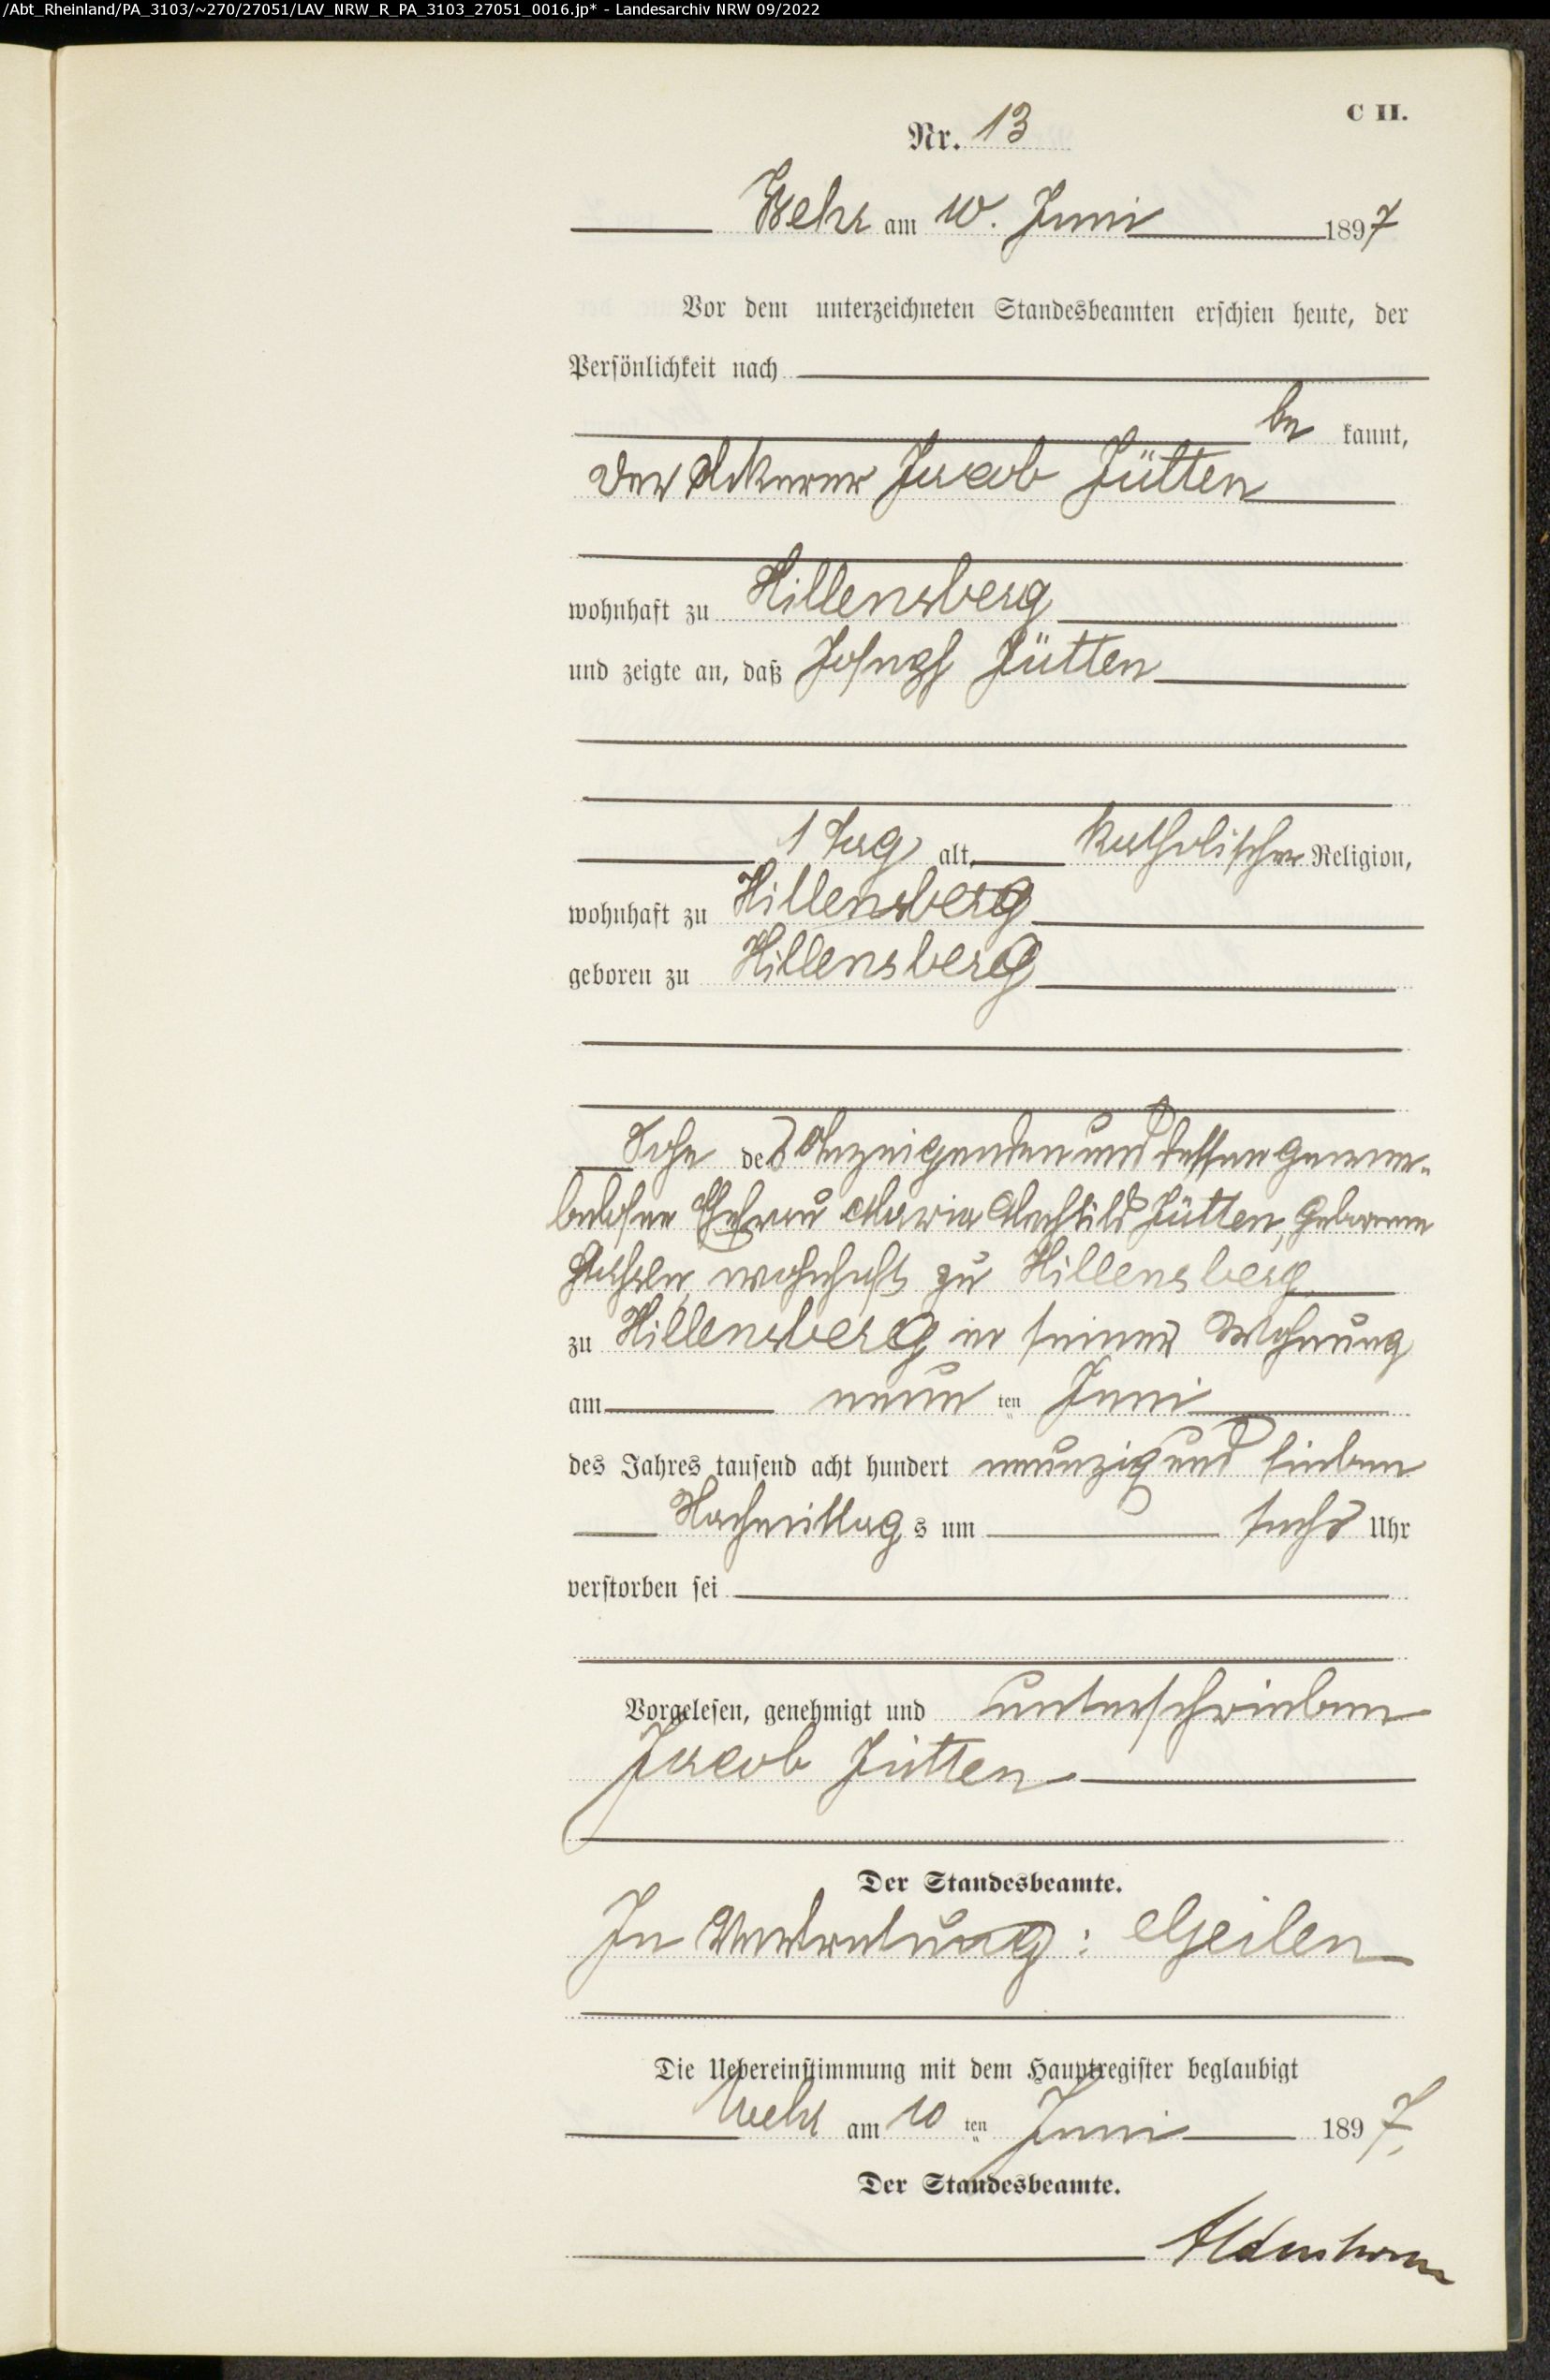 /Abt_Rheinland/PA_3103/~270/27051/LAV_NRW_R_PA_3103_27051_0016.jp* - Landesarchiv NRW 09/2022
C II.
Nr. 13
Wehr am 10. Juni 1897
Vor dem unterzeichneten Standesbeamten erschien heute, der
Persönlichkeit nach
be kannt,
der Akerer Jacob Jütten
wohnhaft zu Hillensberg
und zeigte an, daß Joseph Jütten
1 Tag alt, katholischer Religion,
wohnhaft zu Hillensberg
geboren zu Hillensberg
Sohn des Anzeigenden und dessen gewerbe-
losen Ehefrau Maria Mechtild Jütten, geborene
wohnhaft zu Hillensberg
zu Hillensberg in seiner Wohnung
am neun ten Juni
des Jahres tausend acht hundert neunzig und sieben
Nachmittag s um sechs Uhr
verstorben sei
Vorgelesen, genehmigt und unterschrieben
Jacob Jütten
Der Standesbeamte.
In Vertretung: Geilen
Die Uebereinstimmung mit dem Hauptregister beglaubigt
Wehr am 10 ten Juni 1897.
Der Standesbeamte.